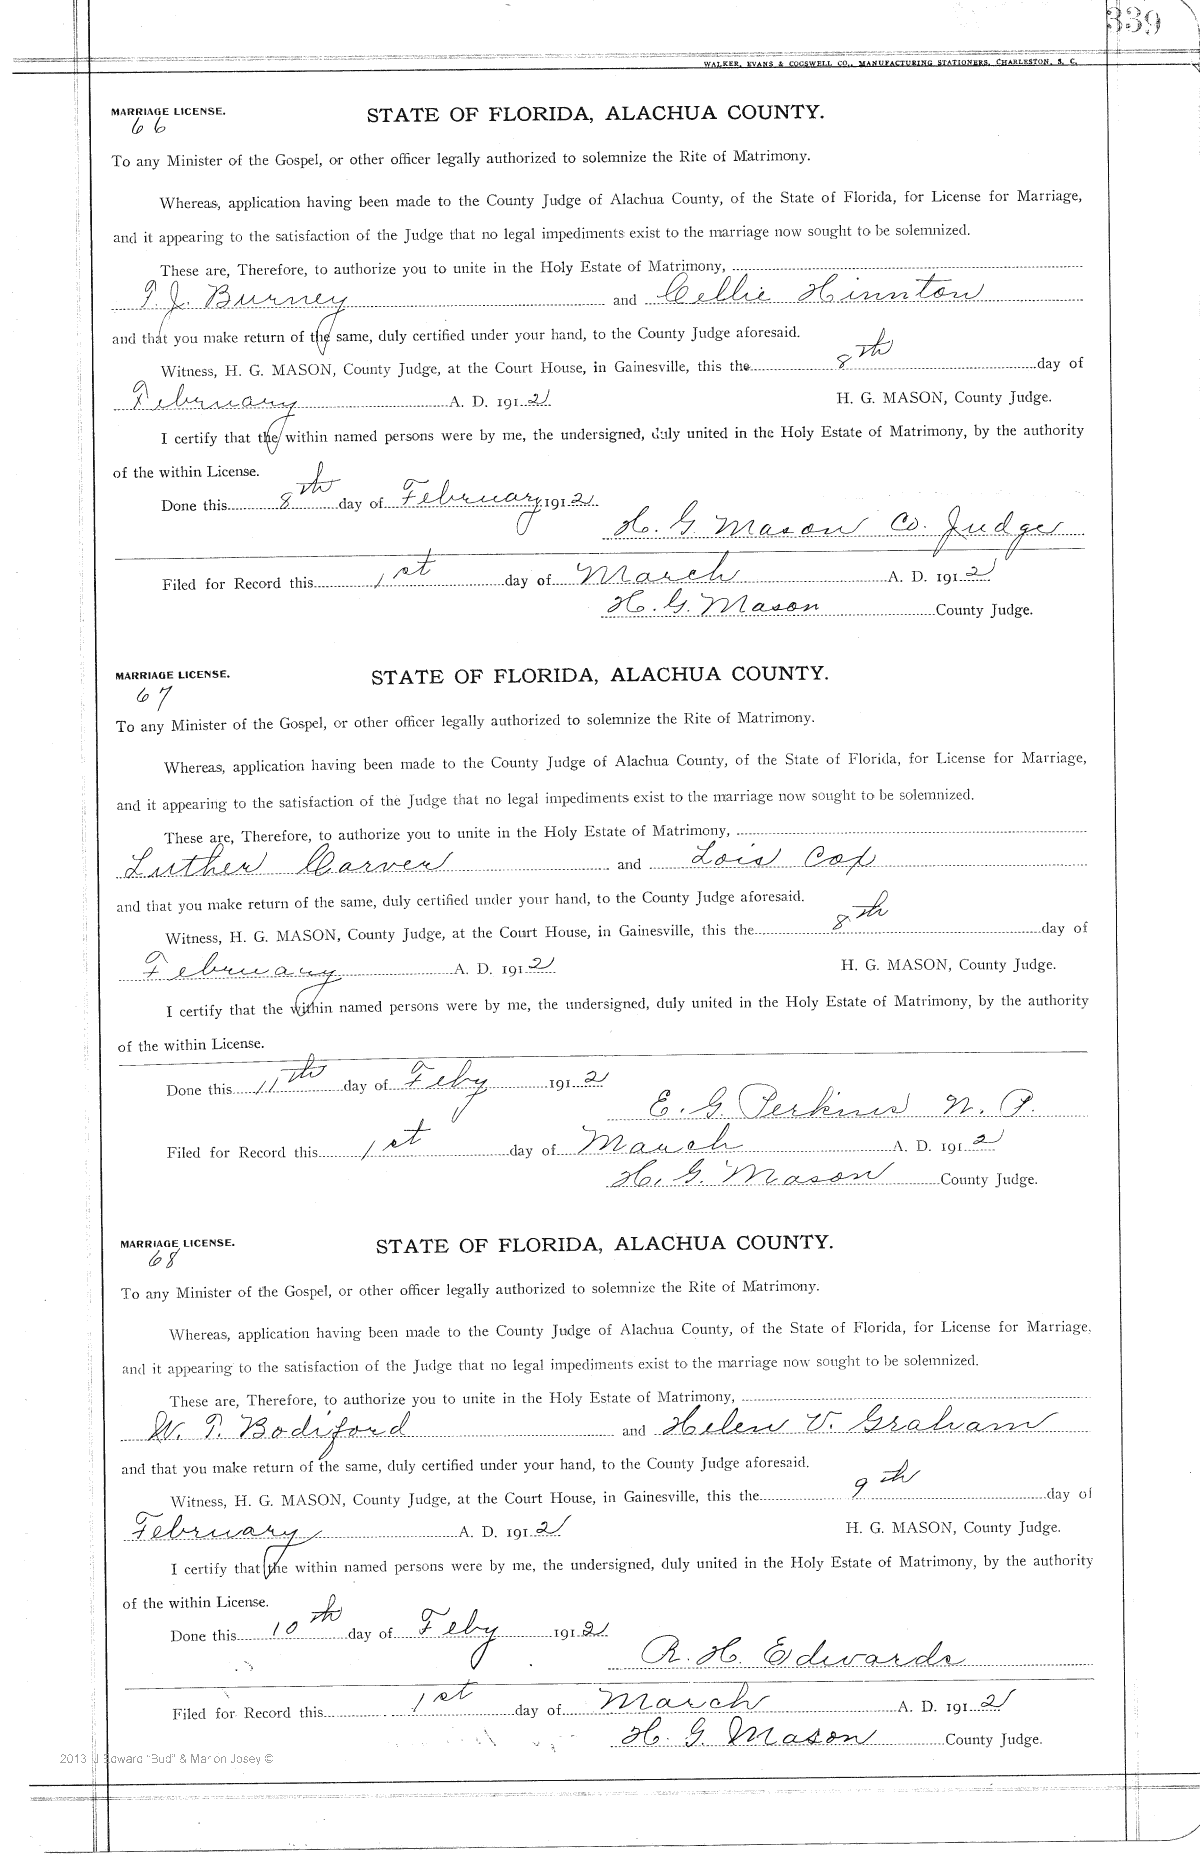 339
WALKER, EVANS & COGSWELL CO., MANUFACTURING STATIONERS, CHARLESTON, S. C.
MARRIAGE LICENSE.
STATE OF FLORIDA, ALACHUA COUNTY.
66
To any Minister of the Gospel, or other officer legally authorized to solemnize the Rite of Matrimony.
Whereas, application having been made to the County Judge of Alachua County, of the State of Florida, for License for Marriage,
and it appearing to the satisfaction of the Judge that no legal impediments exist to the marriage now sought to be solemnized.
These are, Therefore, to authorize you to unite in the Holy Estate of Matrimony,
T. J. Burney and Cellie Hinnton
and that you make return of the same, duly certified under your hand, to the County Judge aforesaid.
Witness, H. G. MASON, County Judge, at the Court House, in Gainesville, this the 8th day of
February A. D. 1912 H. G. MASON, County Judge.
I certify that the within named persons were by me, the undersigned, duly united in the Holy Estate of Matrimony, by the authority
of the within License.
Done this 8th day of February 1912
H. G. Mason Co. Judge
Filed for Record this 1st day of March A. D. 1912
H. G. Mason County Judge.
MARRIAGE LICENSE.
STATE OF FLORIDA, ALACHUA COUNTY.
67
To any Minister of the Gospel, or other officer legally authorized to solemnize the Rite of Matrimony.
Whereas, application having been made to the County Judge of Alachua County, of the State of Florida, for License for Marriage,
and it appearing to the satisfaction of the Judge that no legal impediments exist to the marriage now sought to be solemnized.
These are, Therefore, to authorize you to unite in the Holy Estate of Matrimony,
Luther Carver and Lois Cox
and that you make return of the same, duly certified under your hand, to the County Judge aforesaid.
Witness, H. G. MASON, County Judge, at the Court House, in Gainesville, this the 8th day of
February A. D. 1912 H. G. MASON, County Judge.
I certify that the within named persons were by me, the undersigned, duly united in the Holy Estate of Matrimony, by the authority
of the within License.
Done this 11th day of Feby 1912
E. G. Perkins N. P.
Filed for Record this 1st day of March A. D. 1912
H. G. Mason County Judge.
MARRIAGE LICENSE.
STATE OF FLORIDA, ALACHUA COUNTY.
68
To any Minister of the Gospel, or other officer legally authorized to solemnize the Rite of Matrimony.
Whereas, application having been made to the County Judge of Alachua County, of the State of Florida, for License for Marriage.
and it appearing to the satisfaction of the Judge that no legal impediments exist to the marriage now sought to be solemnized.
These are, Therefore, to authorize you to unite in the Holy Estate of Matrimony,
W. T. Bodiford and Helen V. Graham
and that you make return of the same, duly certified under your hand, to the County Judge aforesaid.
Witness, H. G. MASON, County Judge, at the Court House, in Gainesville, this the 9th day of
February A. D. 1912 H. G. MASON, County Judge.
I certify that the within named persons were by me, the undersigned, duly united in the Holy Estate of Matrimony, by the authority
of the within License.
Done this 10th day of Feby 1912
R. H. Edwards
Filed for Record this 1st day of March A. D. 1912
H. G. Mason County Judge.
2013 J Edward "Bud" & Marion Josey ©